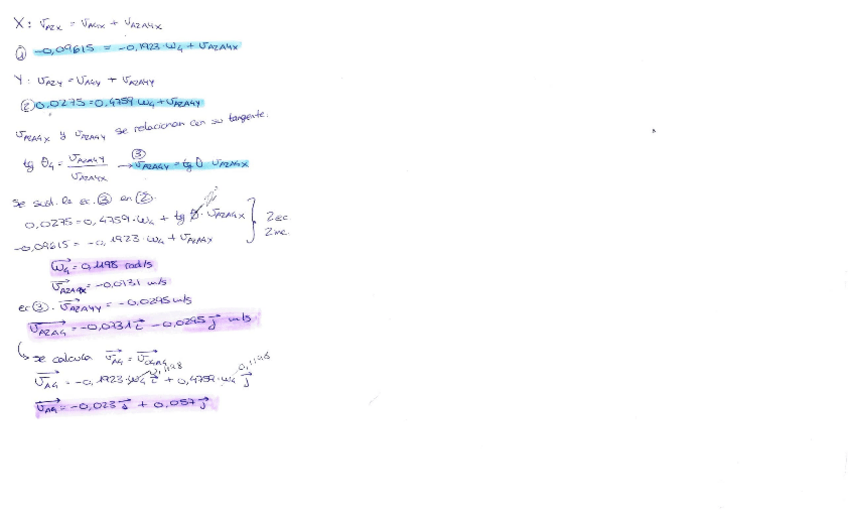 X: v_A2x = v_A4x + v_A2A4x
① -0,09615 = -0,1923·ω4 + v_A2A4x
Y: v_A2y = v_A4y + v_A2A4y
② 0,0275 = 0,4759 ω4 + v_A2A4y
v_A2A4x y v_A2A4y se relacionan con su tangente.
tg θ4 = v_A2A4y / v_A2A4x → ③ v_A2A4y = tg θ · v_A2A4x
se sust. la ec. ③ en ②.
0,0275 = 0,4759·ω4 + tg θ · v_A2A4x
-0,09615 = -0,1923·ω4 + v_A2A4x
} 2 ec. 2 inc.
ω4 = 0,1198 rad/s
v_A2A4x = -0,0731 m/s
ec ③. v_A2A4y = -0,0295 m/s
v_A2A4 = -0,0731 i - 0,0295 j m/s
se calcula v_A4 = v_O4A4
v_A4 = -0,1923·ω4 0,1198 i + 0,4759·ω4 0,1198 j
v_A4 = -0,023 i + 0,057 j